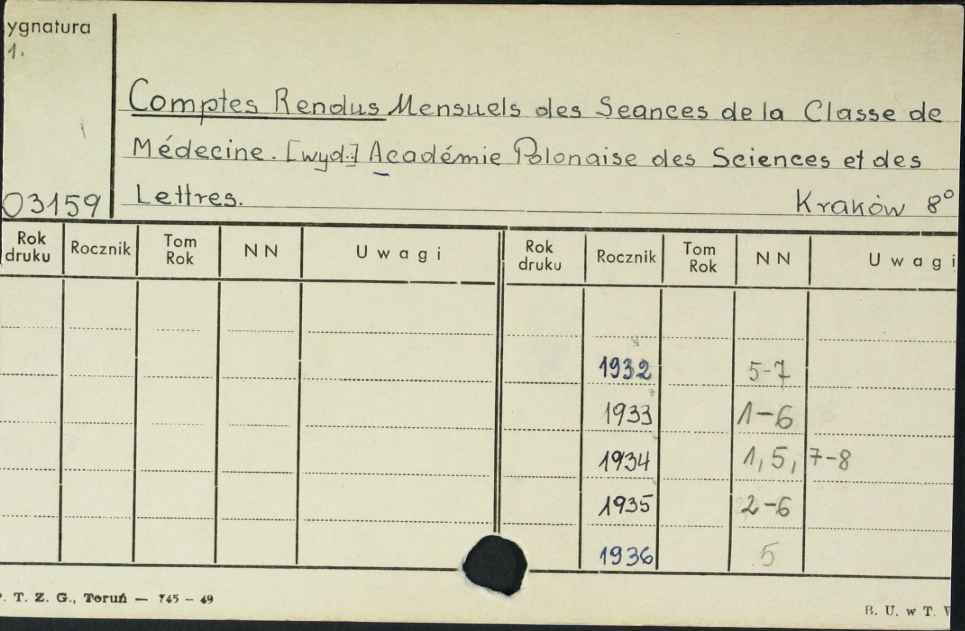 ygnatura
1.
Comptes Rendus Mensuels des Seances de la Classe de
Médecine. [wyd.:] Académie Polonaise des Sciences et des
03159 Lettres. Kraków 8°
Rok druku Rocznik Tom Rok NN Uwagi Rok druku Rocznik Tom Rok NN Uwagi
1932 5-7
1933 1-6
1934 1, 5, 7-8
1935 2-6
1936 5
. T. Z. G., Toruń — 745 - 49
B. U. w T.